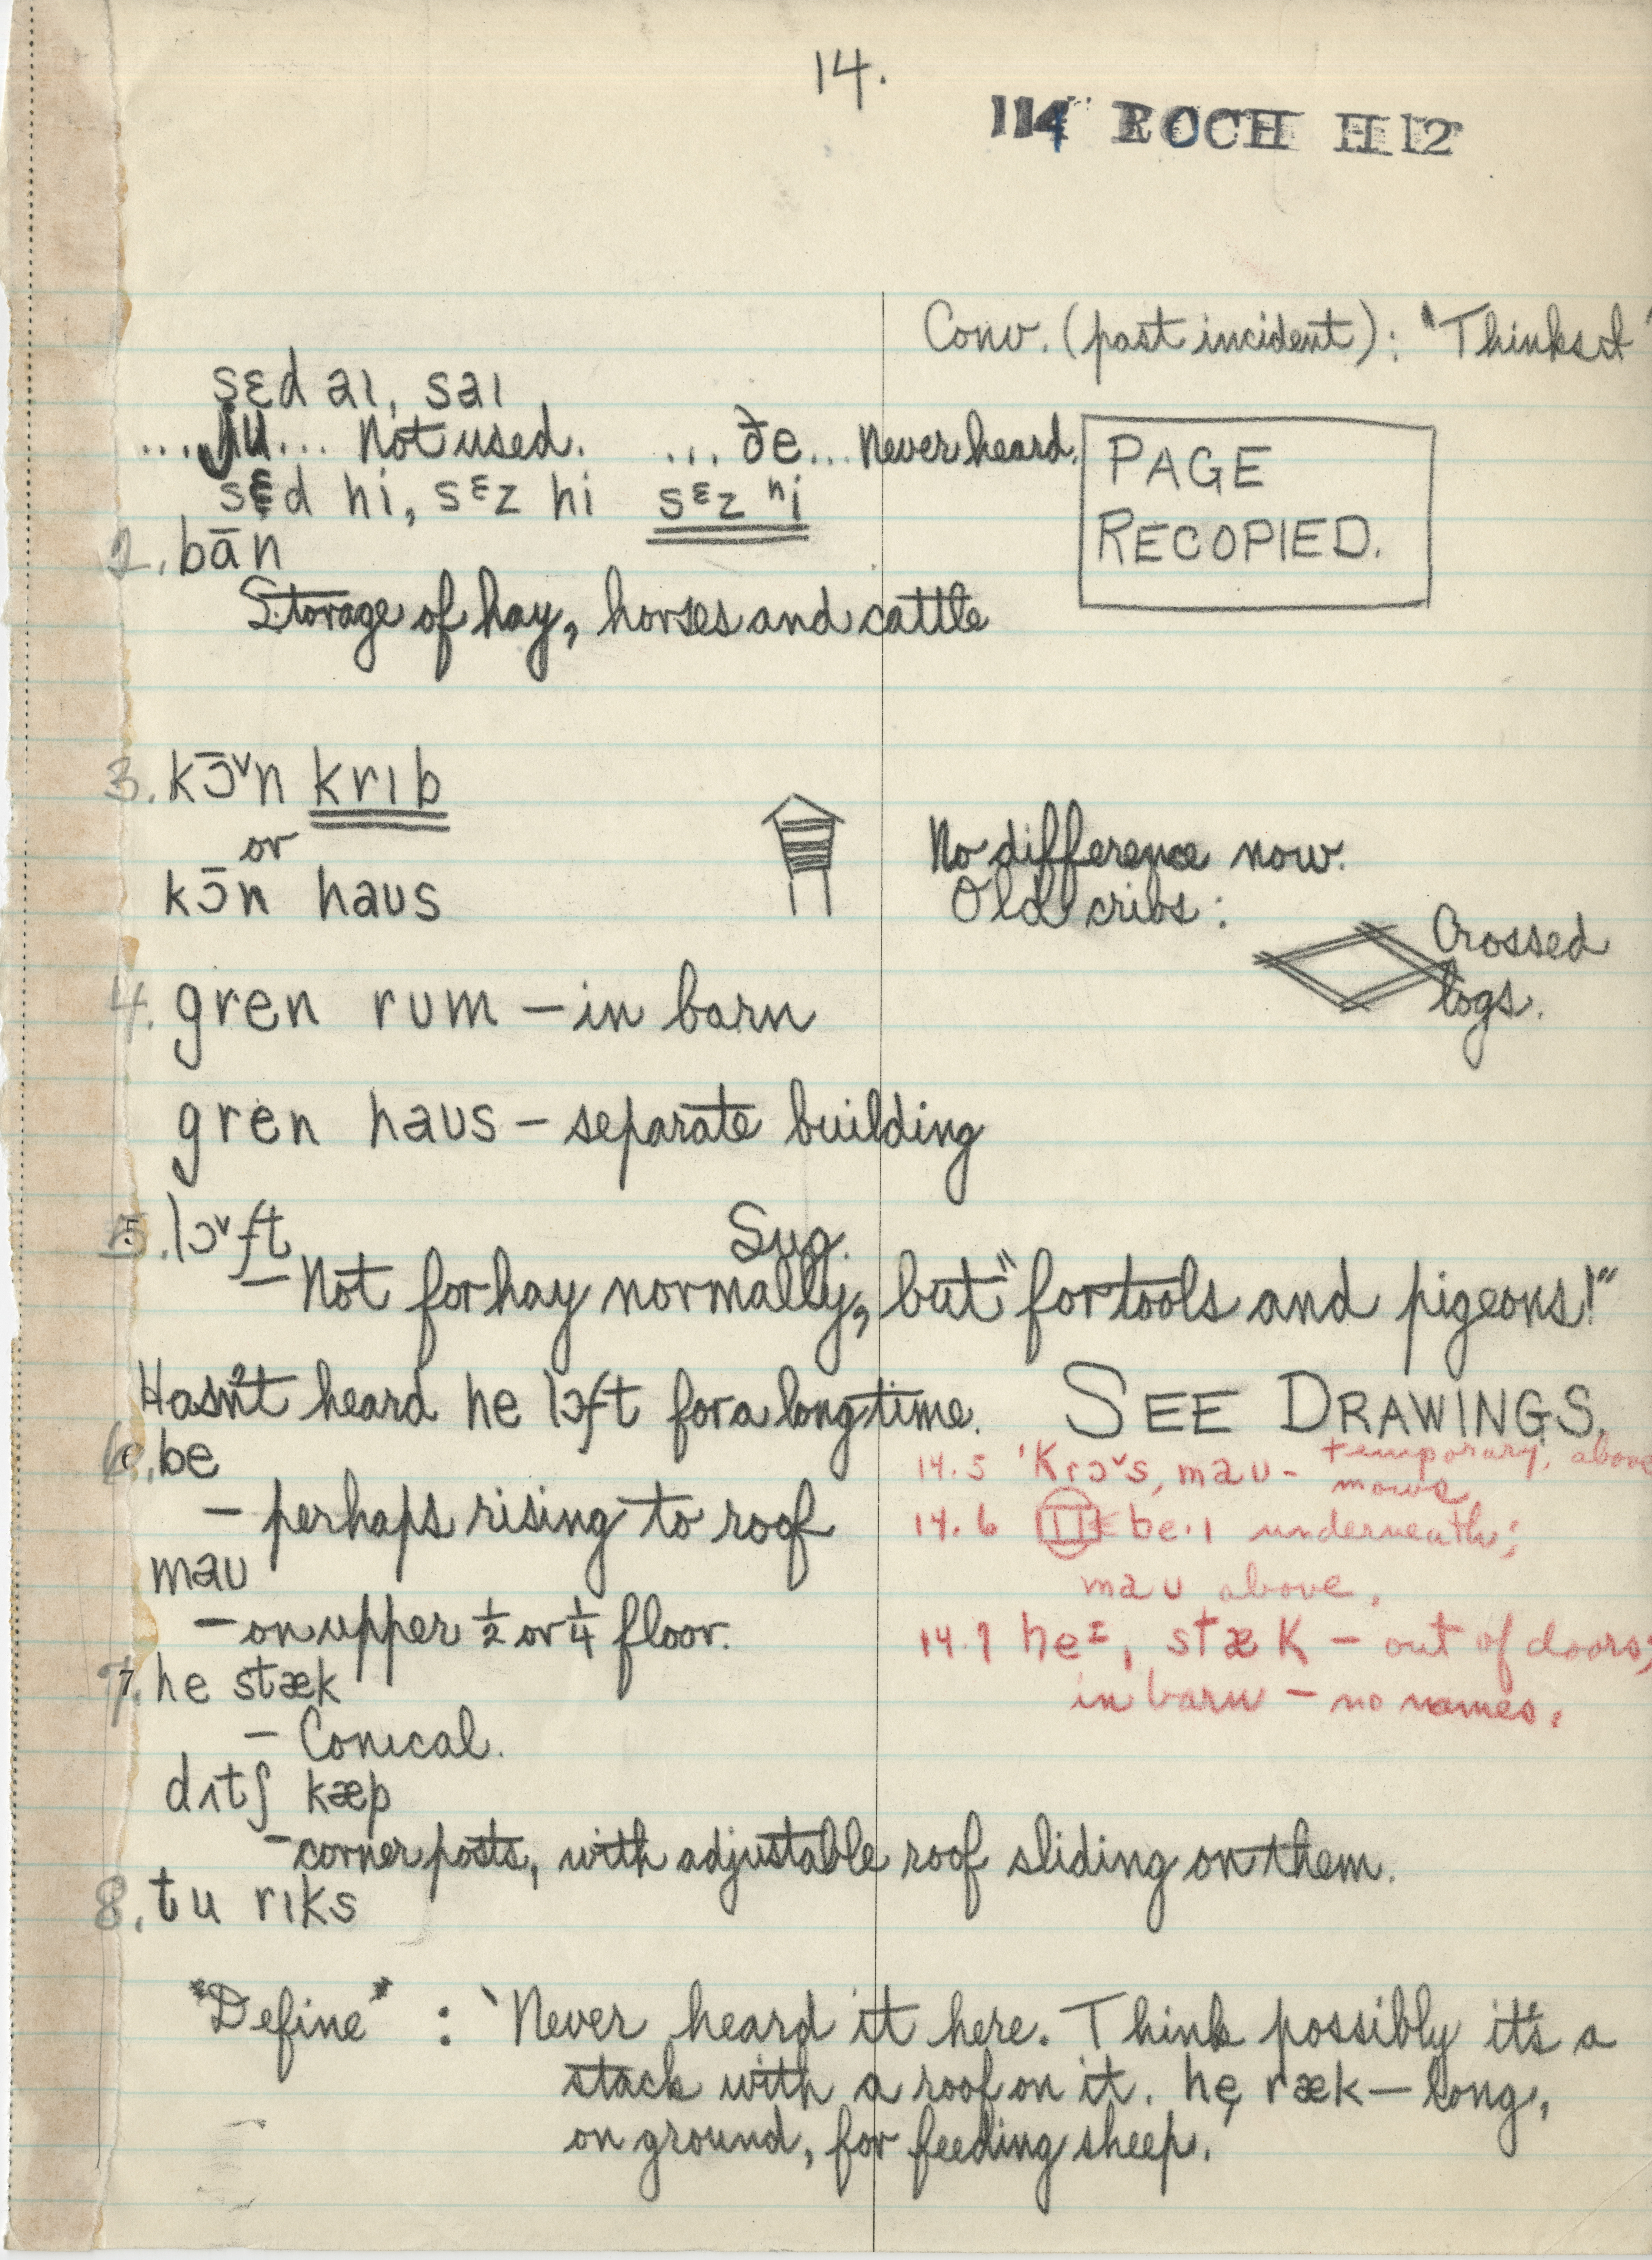 14.
114 ROCH H12
Conv. (past incident): "Thinks I"
sɛd aɪ, saɪ
...ju... Not used. ... ðe... Never heard.
PAGE
RECOPIED.
sɛd hi, sɛz hi sɛz ʰi
2. bān
Storage of hay, horses and cattle
3. kɔ̄ᵛn krɪb
or
kɔ̄n haus
No difference now.
Old cribs:
Crossed
logs.
4. gren rum – in barn
gren haus – separate building
5. lɔᵛft Sug.
– Not for hay normally, but "for tools and pigeons!"
Hasn't heard he lɔft for a long time. SEE DRAWINGS.
6. be
– perhaps rising to roof
mau
– on upper ½ or ¼ floor.
14.5 'Krɔᵛs, mau – temporary, above
mows
14.6 be·ɪ underneath;
mau above.
7. he stæk
– Conical.
14.7 heᶦ, stæk – out of doors;
in barn – no names.
dʌtʃ kæp
– corner posts, with adjustable roof sliding on them.
8. tu rɪks
"Define" : 'Never heard it here. Think possibly it's a
stack with a roof on it. he, ræk – long,
on ground, for feeding sheep.